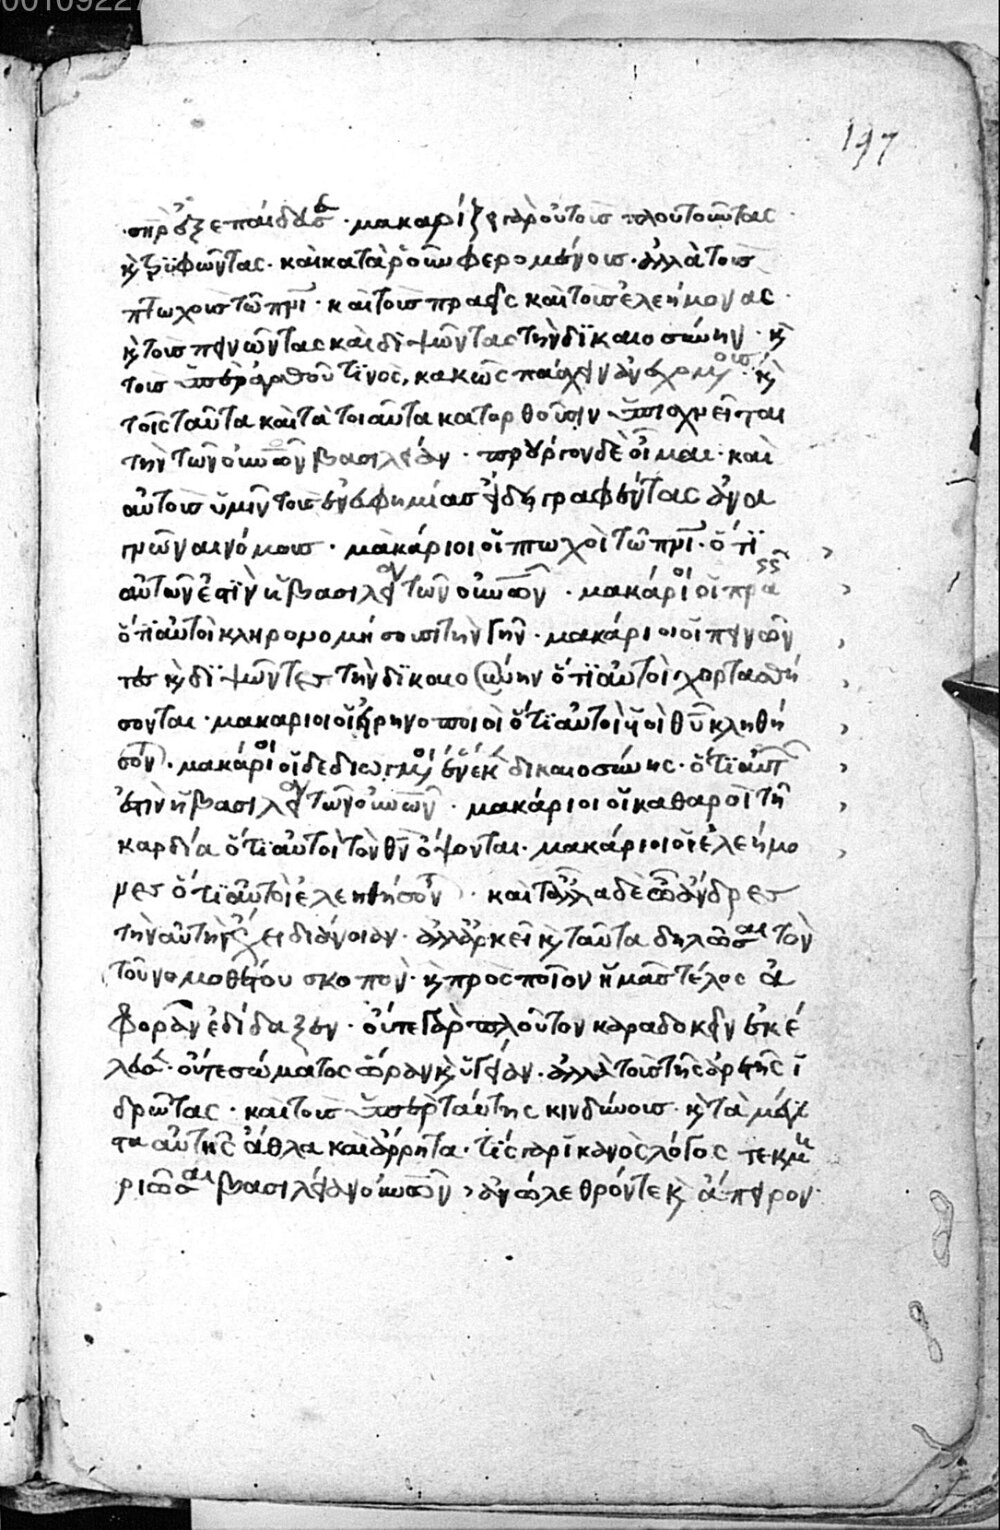 00109227
197
μακαρίζει γὰρ οὐ τοὺς πλουτοῦντας
κ τρϋφῶντας. καὶ κατὰ ῥοῦν φερομένους. ἀλλὰ τοὺς
πτωχοὺς τῶ πνι. καὶ τοὺς πραεῖς καὶ τοὺς ἐλεήμονας.
κ τοὺς πεινῶντας καὶ διψῶντας τὴν δϊκαιοσύνην. κ
τοὺς ὑπὲρ ἀγαθοῦ τϊνος, κακῶς πάσχειν ἀνεχομένους. κ
τοῖς ταῦτα καὶ τὰ τοιαῦτα κατορθοῦσιν ὑπισχνεῖται
τὴν τῶν οὐνῶν βασιλείαν. προὔργου δὲ οἶμαι. καὶ
αὐτοὺς ὑμῖν τοὺς ἐν εὐφημίας εἴδει γραφέντας ἀνα
γνῶναι νόμους. μακάριοι οἱ πτωχοὶ τῶ πνι. ὅτϊ
αὐτῶν ἐστϊν ἡ βασιλεία τῶν οὐνῶν. μακάριοι οἱ πρα
ὅτϊ αὐτοὶ κληρονομήσουσι τὴν γῆν. μακάριοι οἱ πεινῶν
τες κ διψῶντες τὴν δϊκαιοσύνην ὅτϊ αὐτοὶ χορτασθή
σονται. μακάριοι οἱ εἰρηνοποιοὶ ὅτϊ αὐτοὶ υἱοὶ θυ κληθή
σονται. μακάριοι οἱ δεδιωγμένοι ἕνεκεν δικαιοσύνης. ὅτϊ αὐτῶν
ἐστὶν ἡ βασιλεία τῶν οὐνῶν. μακάριοι οἱ καθαροὶ τῆ
καρδία ὅτϊ αὐτοὶ τὸν θν ὄψονται. μακάριοι οἱ ἐλεήμο
νες ὅτϊ αὐτοὶ ἐλεηθήσονται. καὶ τἄλλα δὲ ὦ ἄνδρες
τὴν αὐτὴν ἔχει διάνοιαν. ἀλλ' ἀρκεῖ κ ταῦτα δηλῶσαι τὸν
τοῦ νομοθέτου σκοπὸν. κ πρὸς ποῖον ἡμᾶς τέλος ἀ
φορᾶν ἐδίδαξεν. οὔτε γὰρ πλοῦτον καραδοκεῖν ἐκέ
λευσεν. οὔτε σώματος ὥραν κ ὑγείαν. ἀλλὰ τοὺς τῆς ἀρετῆς ἱ
δρῶτας. καὶ τοὺς ὑπὲρ ταύτης κινδύνους. κ τὰ μέγϊ
τα αὐτῆς ἆθλα καὶ ἄρρητα. τίς γὰρ ἱκανὸς λόγος τεκμη
ριῶσαι βασιλείαν οὐνῶν, ἀνώλεθρόν τε κ ἄπειρον